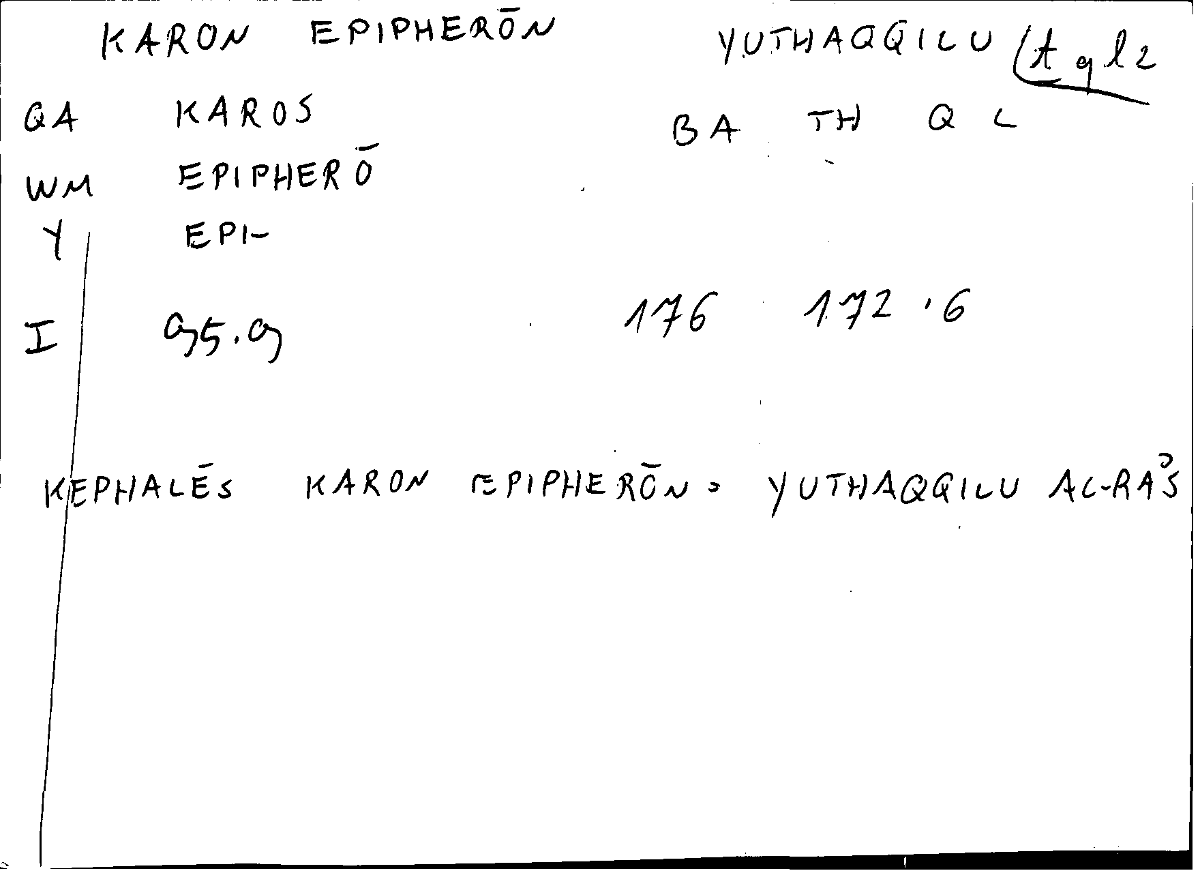 KARON EPIPHERŌN YUTHAQQILU (tql2
QA KAROS BA TH Q L
WM EPIPHERŌ
Y EPI-
I 95.9 176 172.6
KEPHALĒS KARON EPIPHERŌN = YUTHAQQILU AL-RAʾS